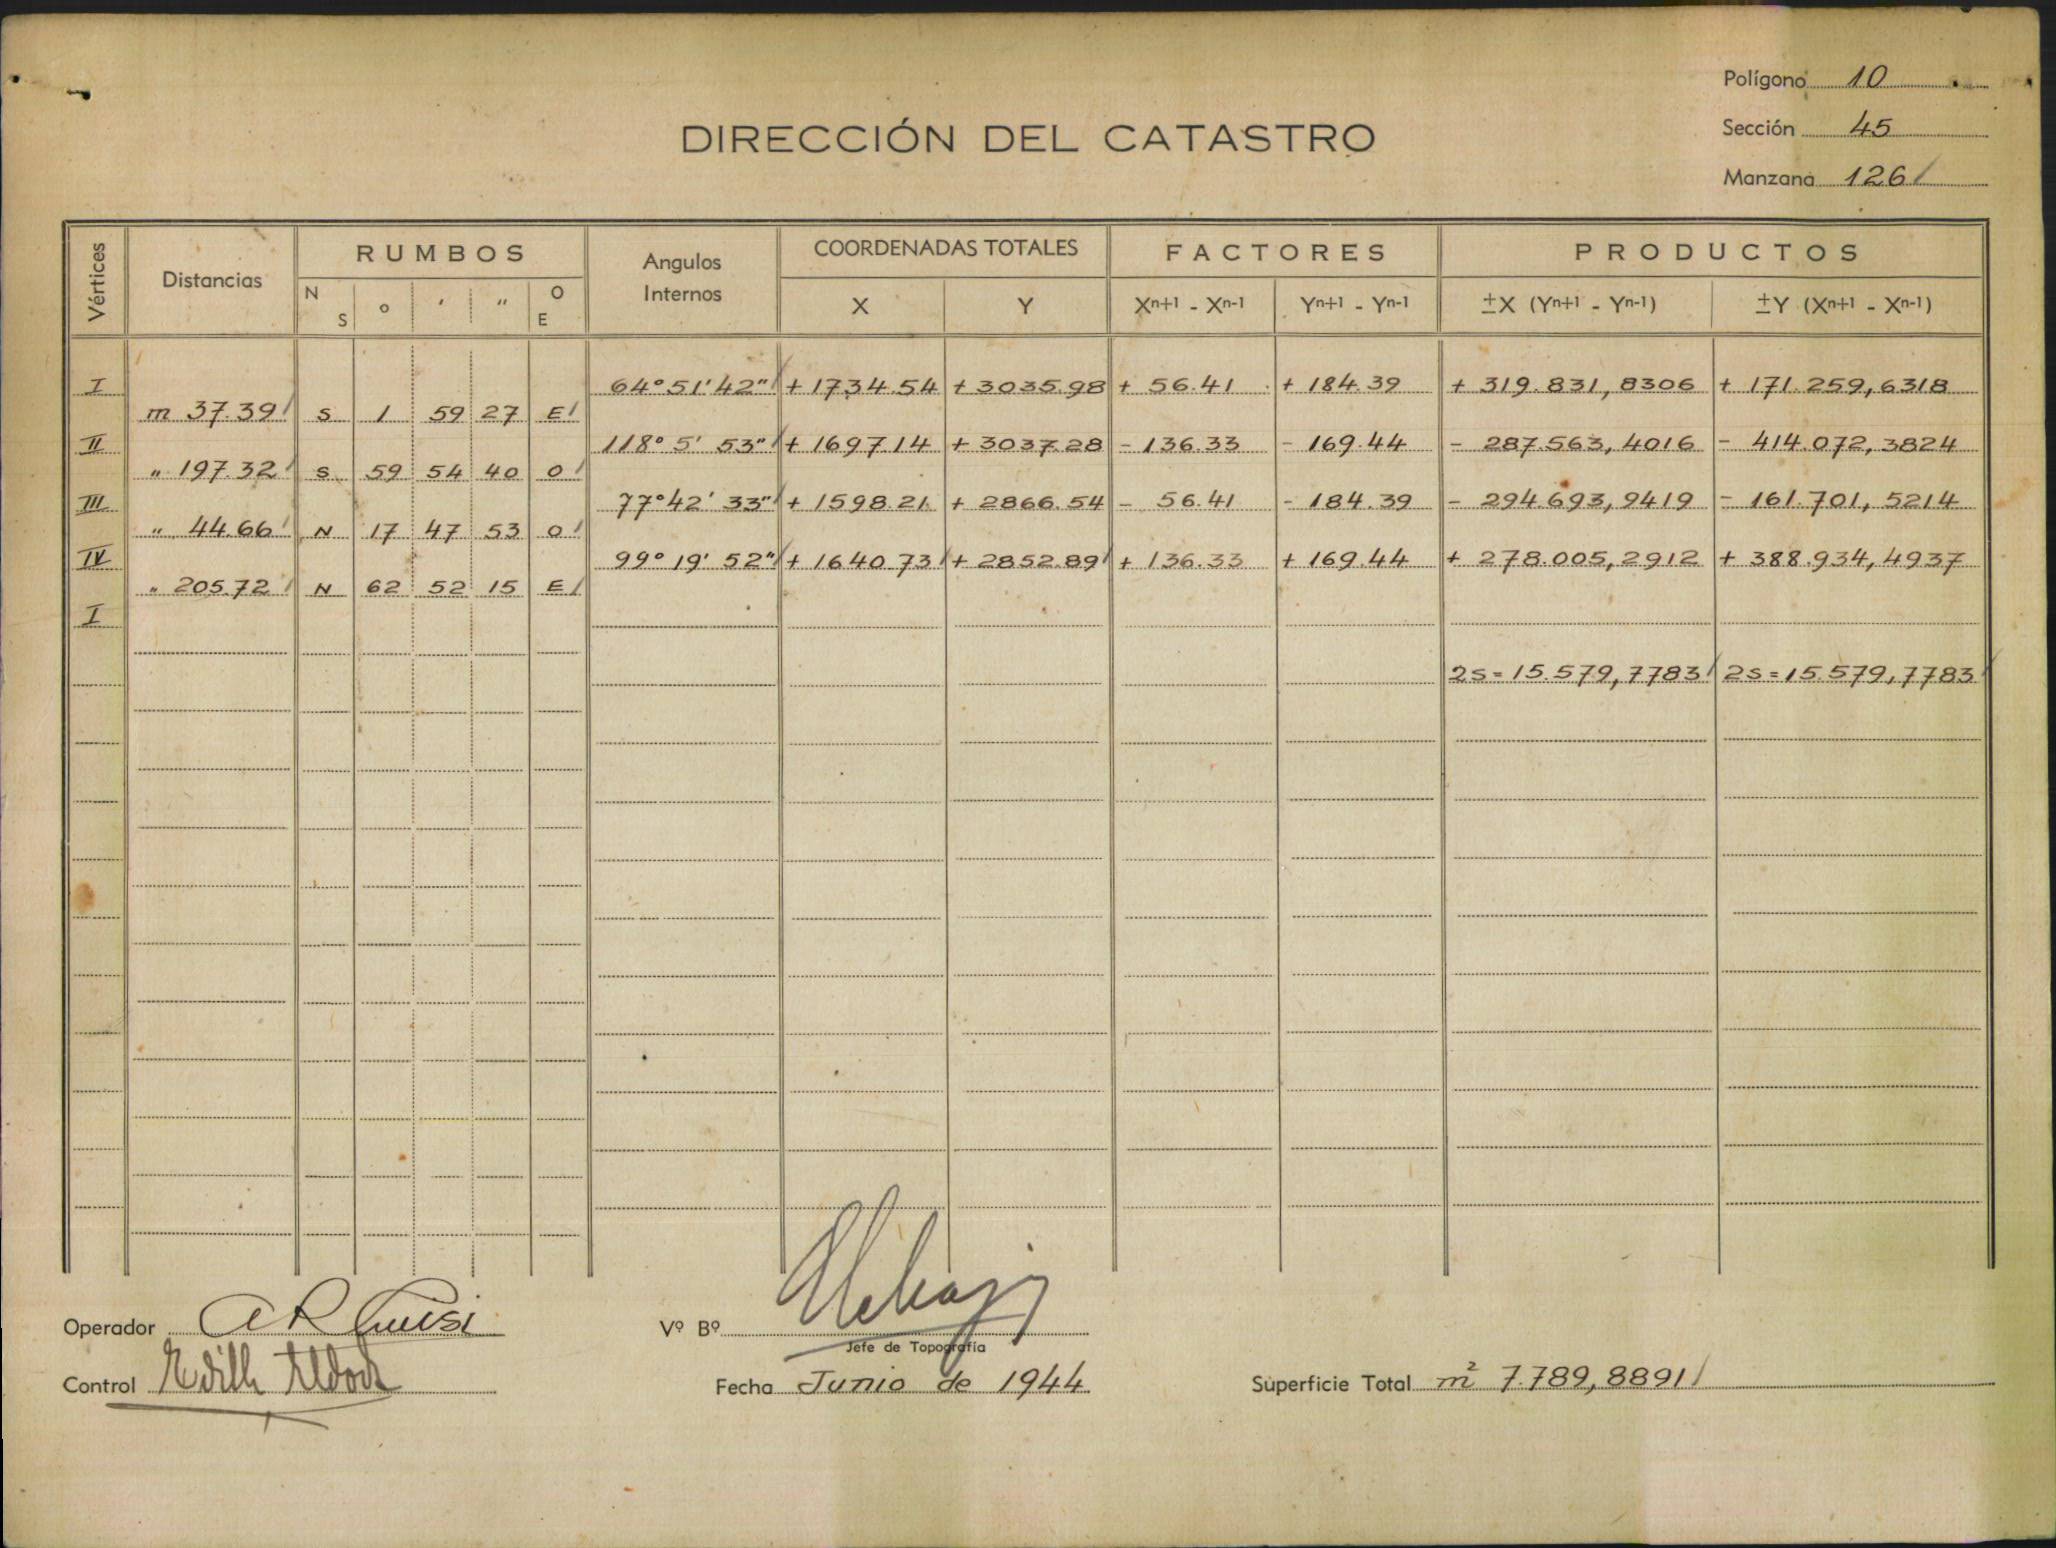 Polígono 10
DIRECCIÓN DEL CATASTRO
Sección 45
Manzana 126
Vértices Distancias RUMBOS Angulos Internos COORDENADAS TOTALES FACTORES PRODUCTOS
N S ° ′ ″ O E X Y Xn+1 - Xn-1 Yn+1 - Yn-1 ±X (Yn+1 - Yn-1) ±Y (Xn+1 - Xn-1)
I 64° 51' 42" + 1734.54 + 3035.98 + 56.41 + 184.39 + 319.831,8306 + 171.259,6318
m 37.39 S 1 59 27 E
II 118° 5' 53" + 1697.14 + 3037.28 - 136.33 - 169.44 - 287.563,4016 - 414.072,3824
" 197.32 S 59 54 40 O
III 77° 42' 33" + 1598.21 + 2866.54 - 56.41 - 184.39 - 294.693,9419 - 161.701,5214
" 44.66 N 17 47 53 O
IV 99° 19' 52" + 1640.73 + 2852.89 + 136.33 + 169.44 + 278.005,2912 + 388.934,4937
" 205.72 N 62 52 15 E
I
2S = 15.579,7783 2S = 15.579,7783
Operador
Vº Bº
Jefe de Topografía
Control
Fecha Junio de 1944
Superficie Total m² 7.789,8891